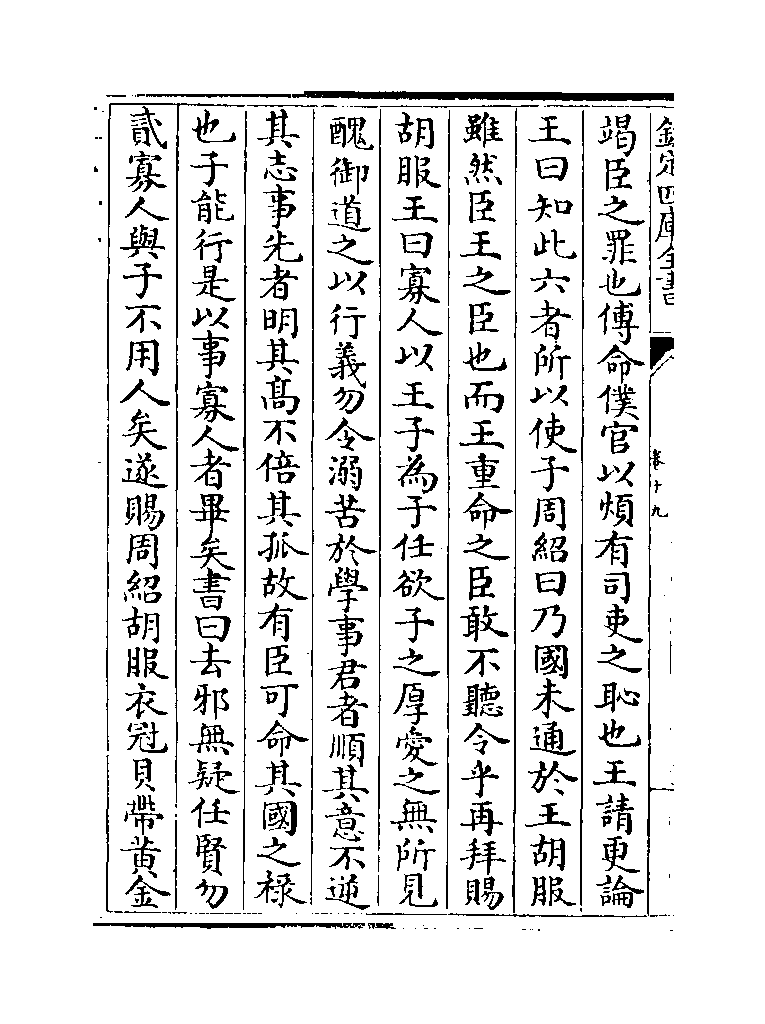 欽定四庫全書
卷十九
竭臣之罪也傅命僕官以煩有司吏之恥也王請更論
王曰知此六者所以使子周紹曰乃國未通於王胡服
雖然臣王之臣也而王重命之臣敢不聽令乎再拜賜
胡服王曰寡人以王子為子任欲子之厚愛之無所見
醜御道之以行義勿令溺苦於學事君者順其意不逆
其志事先者明其髙不倍其孤故有臣可命其國之祿
也子能行是以事寡人者畢矣書曰去邪無疑任賢勿
貳寡人與子不用人矣遂賜周紹胡服衣冠貝帶黄金